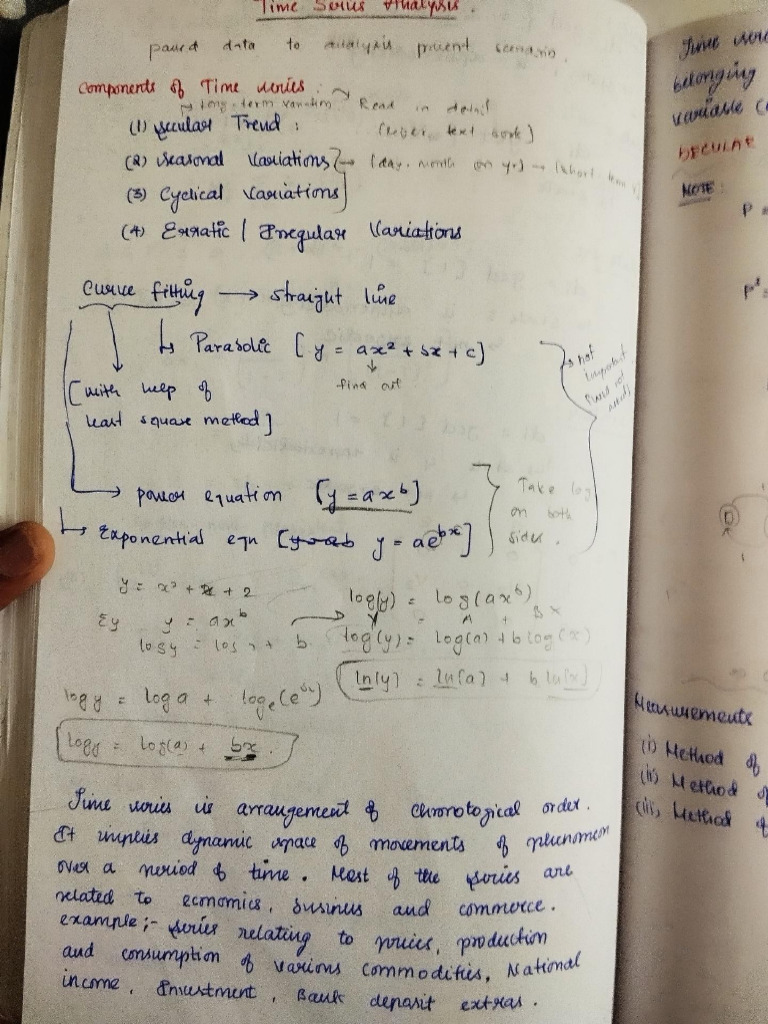 Time Series Analysis.
paved data to analysis present scenario.
Components of Time series :
→ Long-term variation → Read in detail
(1) Secular Trend : [refer text book]
(2) Seasonal Variations → (day, month or yr) → (short term
(3) Cyclical Variations
(4) Erratic / Irregular Variations
Curve fitting → straight line
↳ Parabolic [y = ax² + bx + c]
↓ find out
[with help of
least square method]
→ not important
→ power equation [y = ax^b]
Take log on both sides.
↳ Exponential eqn [y = ae^bx]
y = x² + x + 2
log(y) = log(ax^b)
Σy y = ax^b
Y = A + BX
log y = log + b
log(y) = log(a) + b log(x)
ln(y) = ln(a) + b ln(x)
log y = log a + log_e(e^bx)
log y = log(a) + bx.
Time series is arrangement of chronological order.
It implies dynamic space of movements of phenomen
over a period of time. Most of the series are
related to economics, business and commerce.
example;- series relating to prices, production
and consumption of various commodities, National
income, Investment, Bank deposit extras.
Time
belonging
variable
SECULAR
NOTE:
P =
Measurements
(i) Method of
(ii) Method of
(iii) Method of